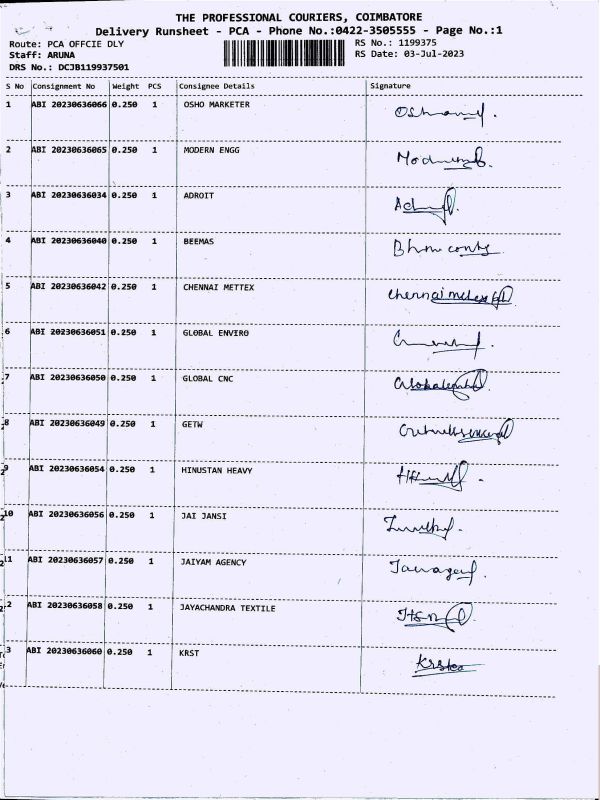 THE PROFESSIONAL COURIERS, COIMBATORE
Delivery Runsheet - PCA - Phone No.:0422-3505555 - Page No.:1
Route: PCA OFFCIE DLY RS No.: 1199375
Staff: ARUNA RS Date: 03-Jul-2023
DRS No.: DCJB119937501
S No Consignment No Weight PCS Consignee Details Signature
1 ABI 20230636066 0.250 1 OSHO MARKETER
2 ABI 20230636065 0.250 1 MODERN ENGG
3 ABI 20230636034 0.250 1 ADROIT
4 ABI 20230636040 0.250 1 BEEMAS
5 ABI 20230636042 0.250 1 CHENNAI METTEX
6 ABI 20230636051 0.250 1 GLOBAL ENVIRO
7 ABI 20230636050 0.250 1 GLOBAL CNC
8 ABI 20230636049 0.250 1 GETW
9 ABI 20230636054 0.250 1 HINUSTAN HEAVY
10 ABI 20230636056 0.250 1 JAI JANSI
11 ABI 20230636057 0.250 1 JAIYAM AGENCY
2 ABI 20230636058 0.250 1 JAYACHANDRA TEXTILE
3 ABI 20230636060 0.250 1 KRST